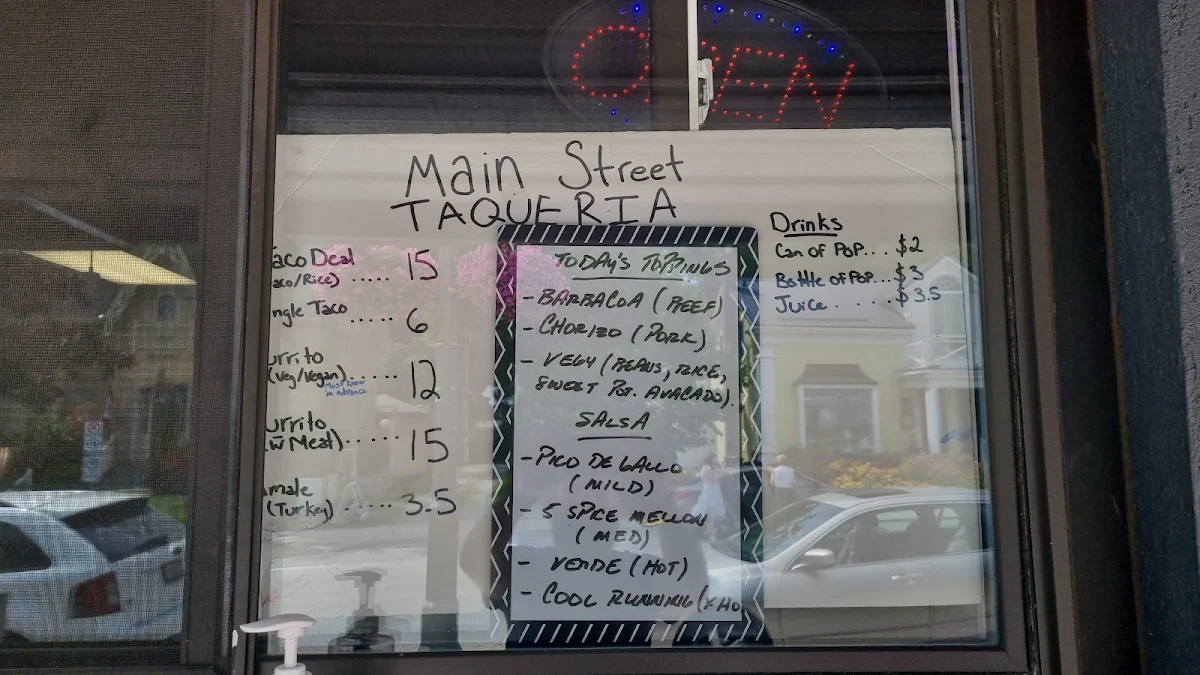 OPEN
Main Street
TAQUERIA
aco Deal
aco/Rice) ..... 15
ngle Taco ..... 6
urrito
(Veg/Vegan) ..... 12
Must know
in advance
urrito
(w̄ Meat) ..... 15
male
(Turkey) ..... 3.5
TODAY'S TOPPINGS
- BARBACOA (BEEF)
- CHORIZO (PORK)
- VEGY (BEANS, RICE,
SWEET POT. AVACADO).
SALSA
- PICO DE GALLO
(MILD)
- 5 SPICE MELLON
(MED)
- VERDE (HOT)
- COOL RUNNING (X HO
Drinks
Can of Pop... $2
Bottle of Pop... $3
Juice ..... $3.5